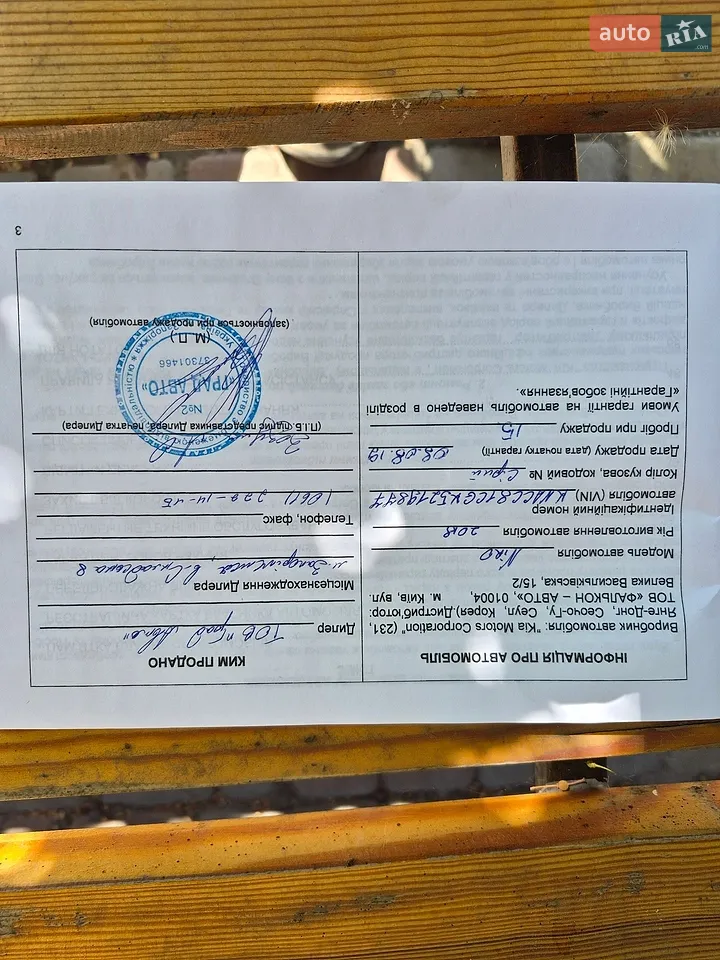 auto RIA .com
3
ІНФОРМАЦІЯ ПРО АВТОМОБІЛЬ
Виробник автомобіля: "Kia Motors Corporation" (231,
Янге-Донг, Сеочо-Гу, Сеул, Корея) Дистриб'ютор:
ТОВ «ФАЛЬКОН – АВТО», 01004, м. Київ, вул.
Велика Васильківська, 15/2,
Модель автомобіля Niro
Рік виготовлення автомобіля 2018
Ідентифікаційний номер
автомобіля (VIN)
Колір кузова, кодовий № Сірий
Дата продажу (дата початку гарантії) 08.08.19
Пробіг при продажу 15
Умови гарантії на автомобіль наведено в розділі
«Гарантійні зобов'язання».
КИМ ПРОДАНО
Дилер ТОВ "Град Авто"
Місцезнаходження Дилера
м. Запоріжжя, в.
Телефон, факс
(061) 229-14-45
(П.І.Б. підпис представника Дилера, печатка Дилера)
(М.П.)
(заповнюється при продажу автомобіля)
Україна
Запоріжжя
№2
«ГРАД АВТО»
37301466